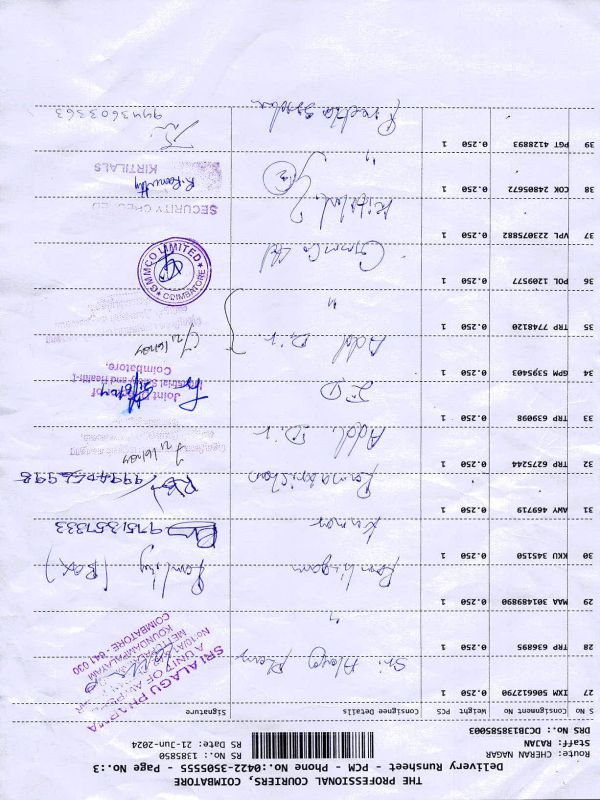 THE PROFESSIONAL COURIERS, COIMBATORE
Delivery Runsheet - PCM - Phone No.:0422-3505555 - Page No.:3
Route: CHERAN NAGAR
Staff: RAJAN RS No.: 1385850
DRS No.: DCJB138585003 RS Date: 21-Jun-2024
S No Consignment No Weight PCS Consignee Details Signature
27 IXM 50661790 0.250 1 Sri Alagu Pharm
SRI ALAGU PHARMA
COIMBATORE - 641 030
28 TRP 636895 0.250 1 "
29 MAA 301489890 0.250 1 Ramlingam Ramlingam (Box)
30 KKU 345150 0.250 1 Kumar 9751357333
31 ANY 469719 0.250 1 Ramakrishnan
32 TRP 6275244 0.250 1 Addl. Dir
33 TRP 639098 0.250 1 JD
Joint
Industrial Safety and Health-I
Coimbatore.
34 GPM 5395403 0.250 1 Addl Dir
35 TRP 7748120 0.250 1 "
36 POL 1209577 0.250 1 Gmmco Ltd
GMMCO LIMITED
COIMBATORE
37 VPL 223075882 0.250 1 Kirtilal
SECURITY CHECKED
38 COK 24805672 0.250 1 "
KIRTILALS
39 PGT 4128893 0.250 1
9443603363